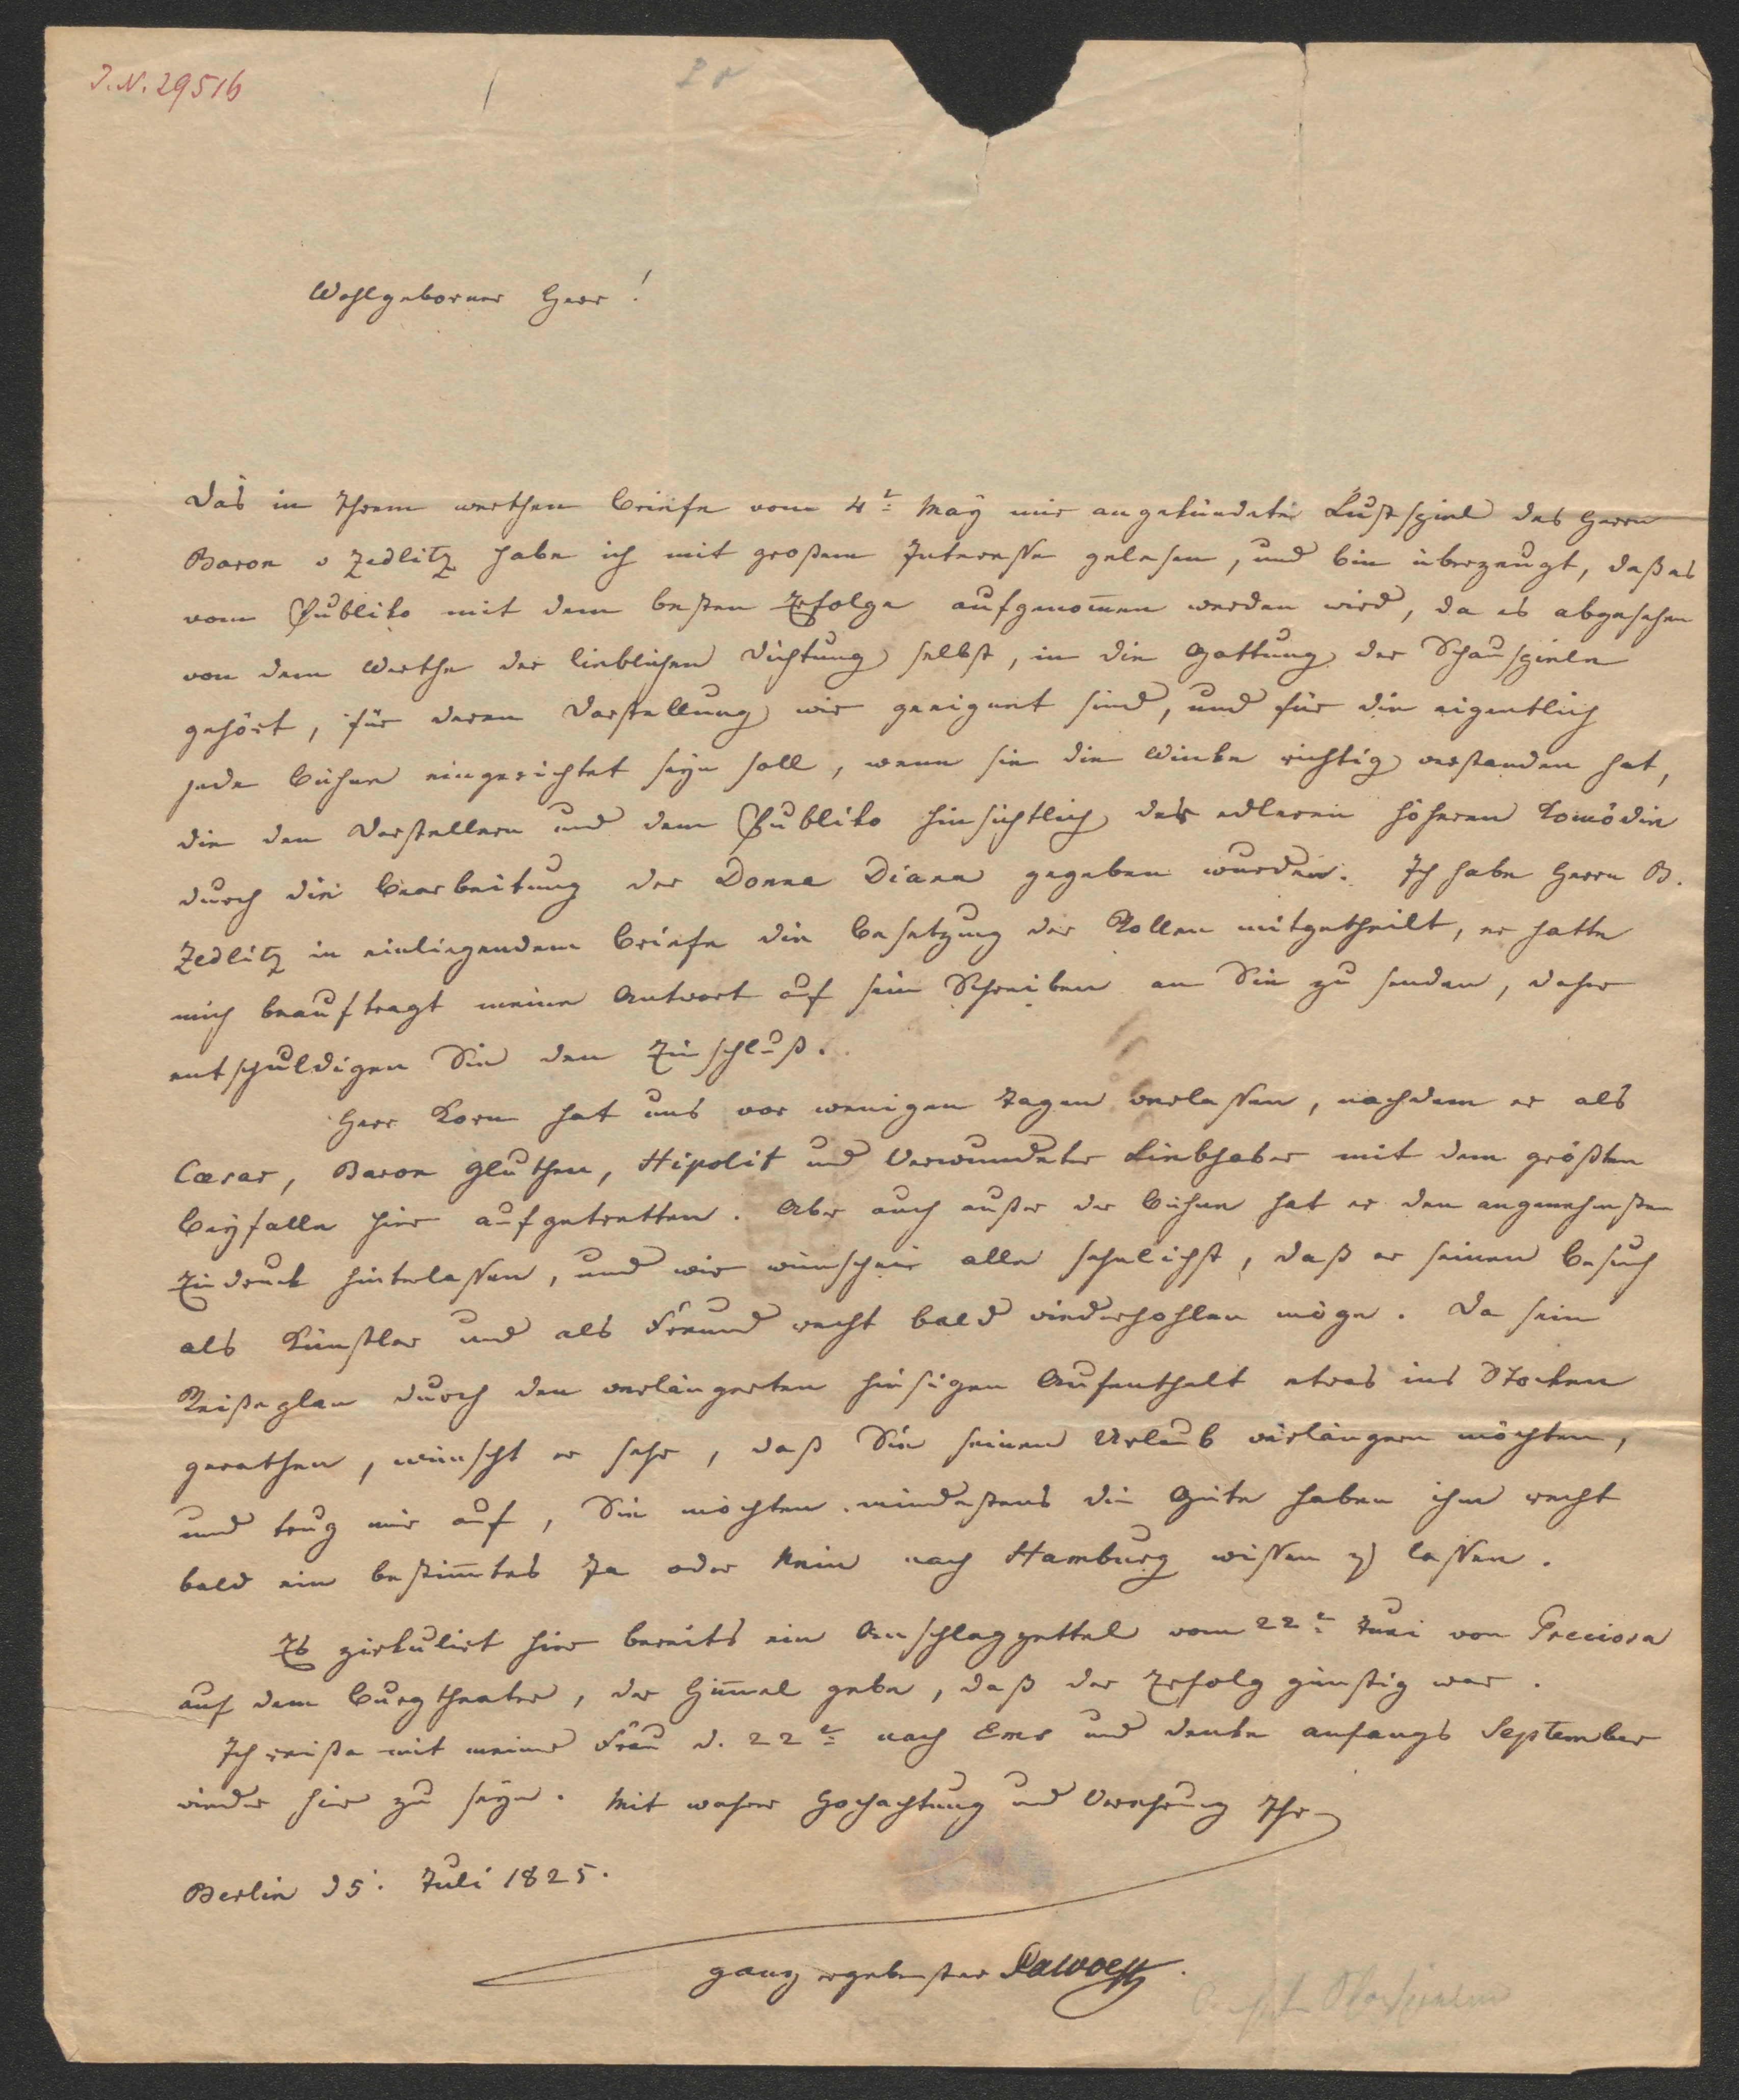 I.N. 29516
Wohlgeborner Herr!
Das in Ihrem werthen Briefe vom 4t: May mir angekündete Lustspiel des Herrn
Baron v Zedlitz habe ich mit großem Interesse gelesen, und bin überzeugt, daß es
vom Publiko mit dem besten Erfolge aufgenom̅en werden wird, da es abgesehen
von dem Werthe der lieblichen Dichtung selbst, in die Gattung der Schauspiele
gehört, für deren Darstellung wir geeignet sind, und für die eigentlich
jede Bühne eingerichtet seyn soll, wenn sie die Winke richtig verstanden hat,
die den Darstellern und dem Publiko hinsichtlich der edleren höheren Komödie
durch die Bearbeitung der Donna Diana gegeben wurden. Ich habe Herrn B.
Zedlitz in einliegendem Briefe die Besetzung der Rollen mitgetheilt, er hatte
mich beauftragt meine Antwort auf sein Schreiben an Sie zu senden, daher
entschuldigen Sie den Einschluß.
Herr Korn hat uns vor wenigen Tagen verlassen, nachdem er als
Cæsar, Baron Gluthen, Hipolit und Verwundeter Liebhaber mit dem größten
Beyfalle hier aufgetretten. Aber auch außer der Bühne hat er den angenehmsten
Eindruck hinterlassen, und wir wünschen alle sehnlichst, daß er seinen Besuch
als Künstler und als Freund recht bald wiederhohlen möge. Da sein
Reißeplan durch den verlängerten hiesigen Aufenthalt etwas ins Stocken
gerathen, wünscht er sehr, daß Sie seinen Urlaub verlängern möchten,
und trug mir auf, Sie möchten mindestens die Güte haben ihm recht
bald ein bestim̅tes Ja oder Nein nach Hamburg wissen zu lassen.
Es zirkulirt hier bereits ein Anschlagzettel vom 22t: Juni von Preciosa
auf dem Burgtheater, der Him̅el gebe, daß der Erfolg günstig war.
Ich reiße mit meiner Frau d. 22t: nach Ems und denke anfangs September
wieder hier zu seyn. Mit wahrer Hochachtung und Verehrung Ihr
Berlin d 5. Juli 1825.
ganz ergebenster